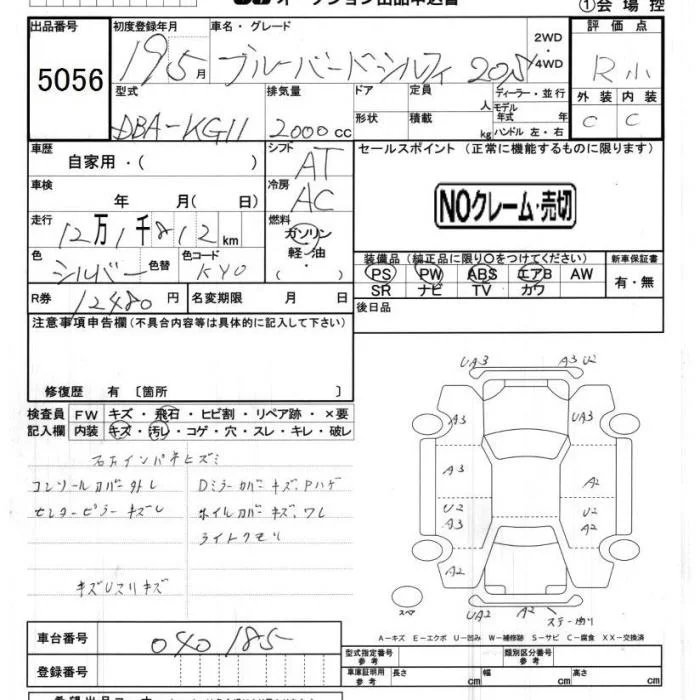 オークション出品申込書
①会場控
出品番号
5056
初度登録年月
19 5月
車名・グレード
ブルーバードシルフィ 20S
2WD
・
4WD
評価点
R小
型式
DBA-KG11
排気量
2000cc
ドア
定員
人
ディーラー・並行
モデル
年式 年
ハンドル 左・右
形状
積載
kg
外装
内装
C
C
車歴
自家用・( )
シフト
AT
セールスポイント (正常に機能するものに限ります)
NOクレーム・売切
車検
年 月 ( 日)
冷房
AC
走行
12万1千812km
燃料
ガソリン
軽・油
・
( )
色
シルバー
色替
色コード
KY0
装備品(純正品に限り〇をつけてください)
PS PW ABS エアB AW
SR ナビ TV カワ
新車保証書
有・無
R券
12480円
名変期限 月 日
後日品
注意事項申告欄(不具合内容等は具体的に記入して下さい)
修復歴 有 〔箇所 〕
検査員
記入欄
FW キズ・飛石・ヒビ割・リペア跡・×要
内装 キズ・汚レ・コゲ・穴・スレ・キレ・破レ
コンソールカバー外レ
センターピラーキズレ
Dミラーカバーキズ、Pハゲ
ホイルカバーキズ、ワレ
ライトクモリ
キズUスリキズ
UA3
A3 U2
A3
UA3
A3
A2
U2
A3
U2
A2
A2
A2
UA2
A2
スペア
A-キズ E-エクボ U-凹み W-補修跡 S-サビ C-腐食 XX-交換済
車台番号
040185
登録番号
型式指定番号
参考
類別区分番号
参考
車庫証明用
参考
長さ cm
幅 cm
高さ cm